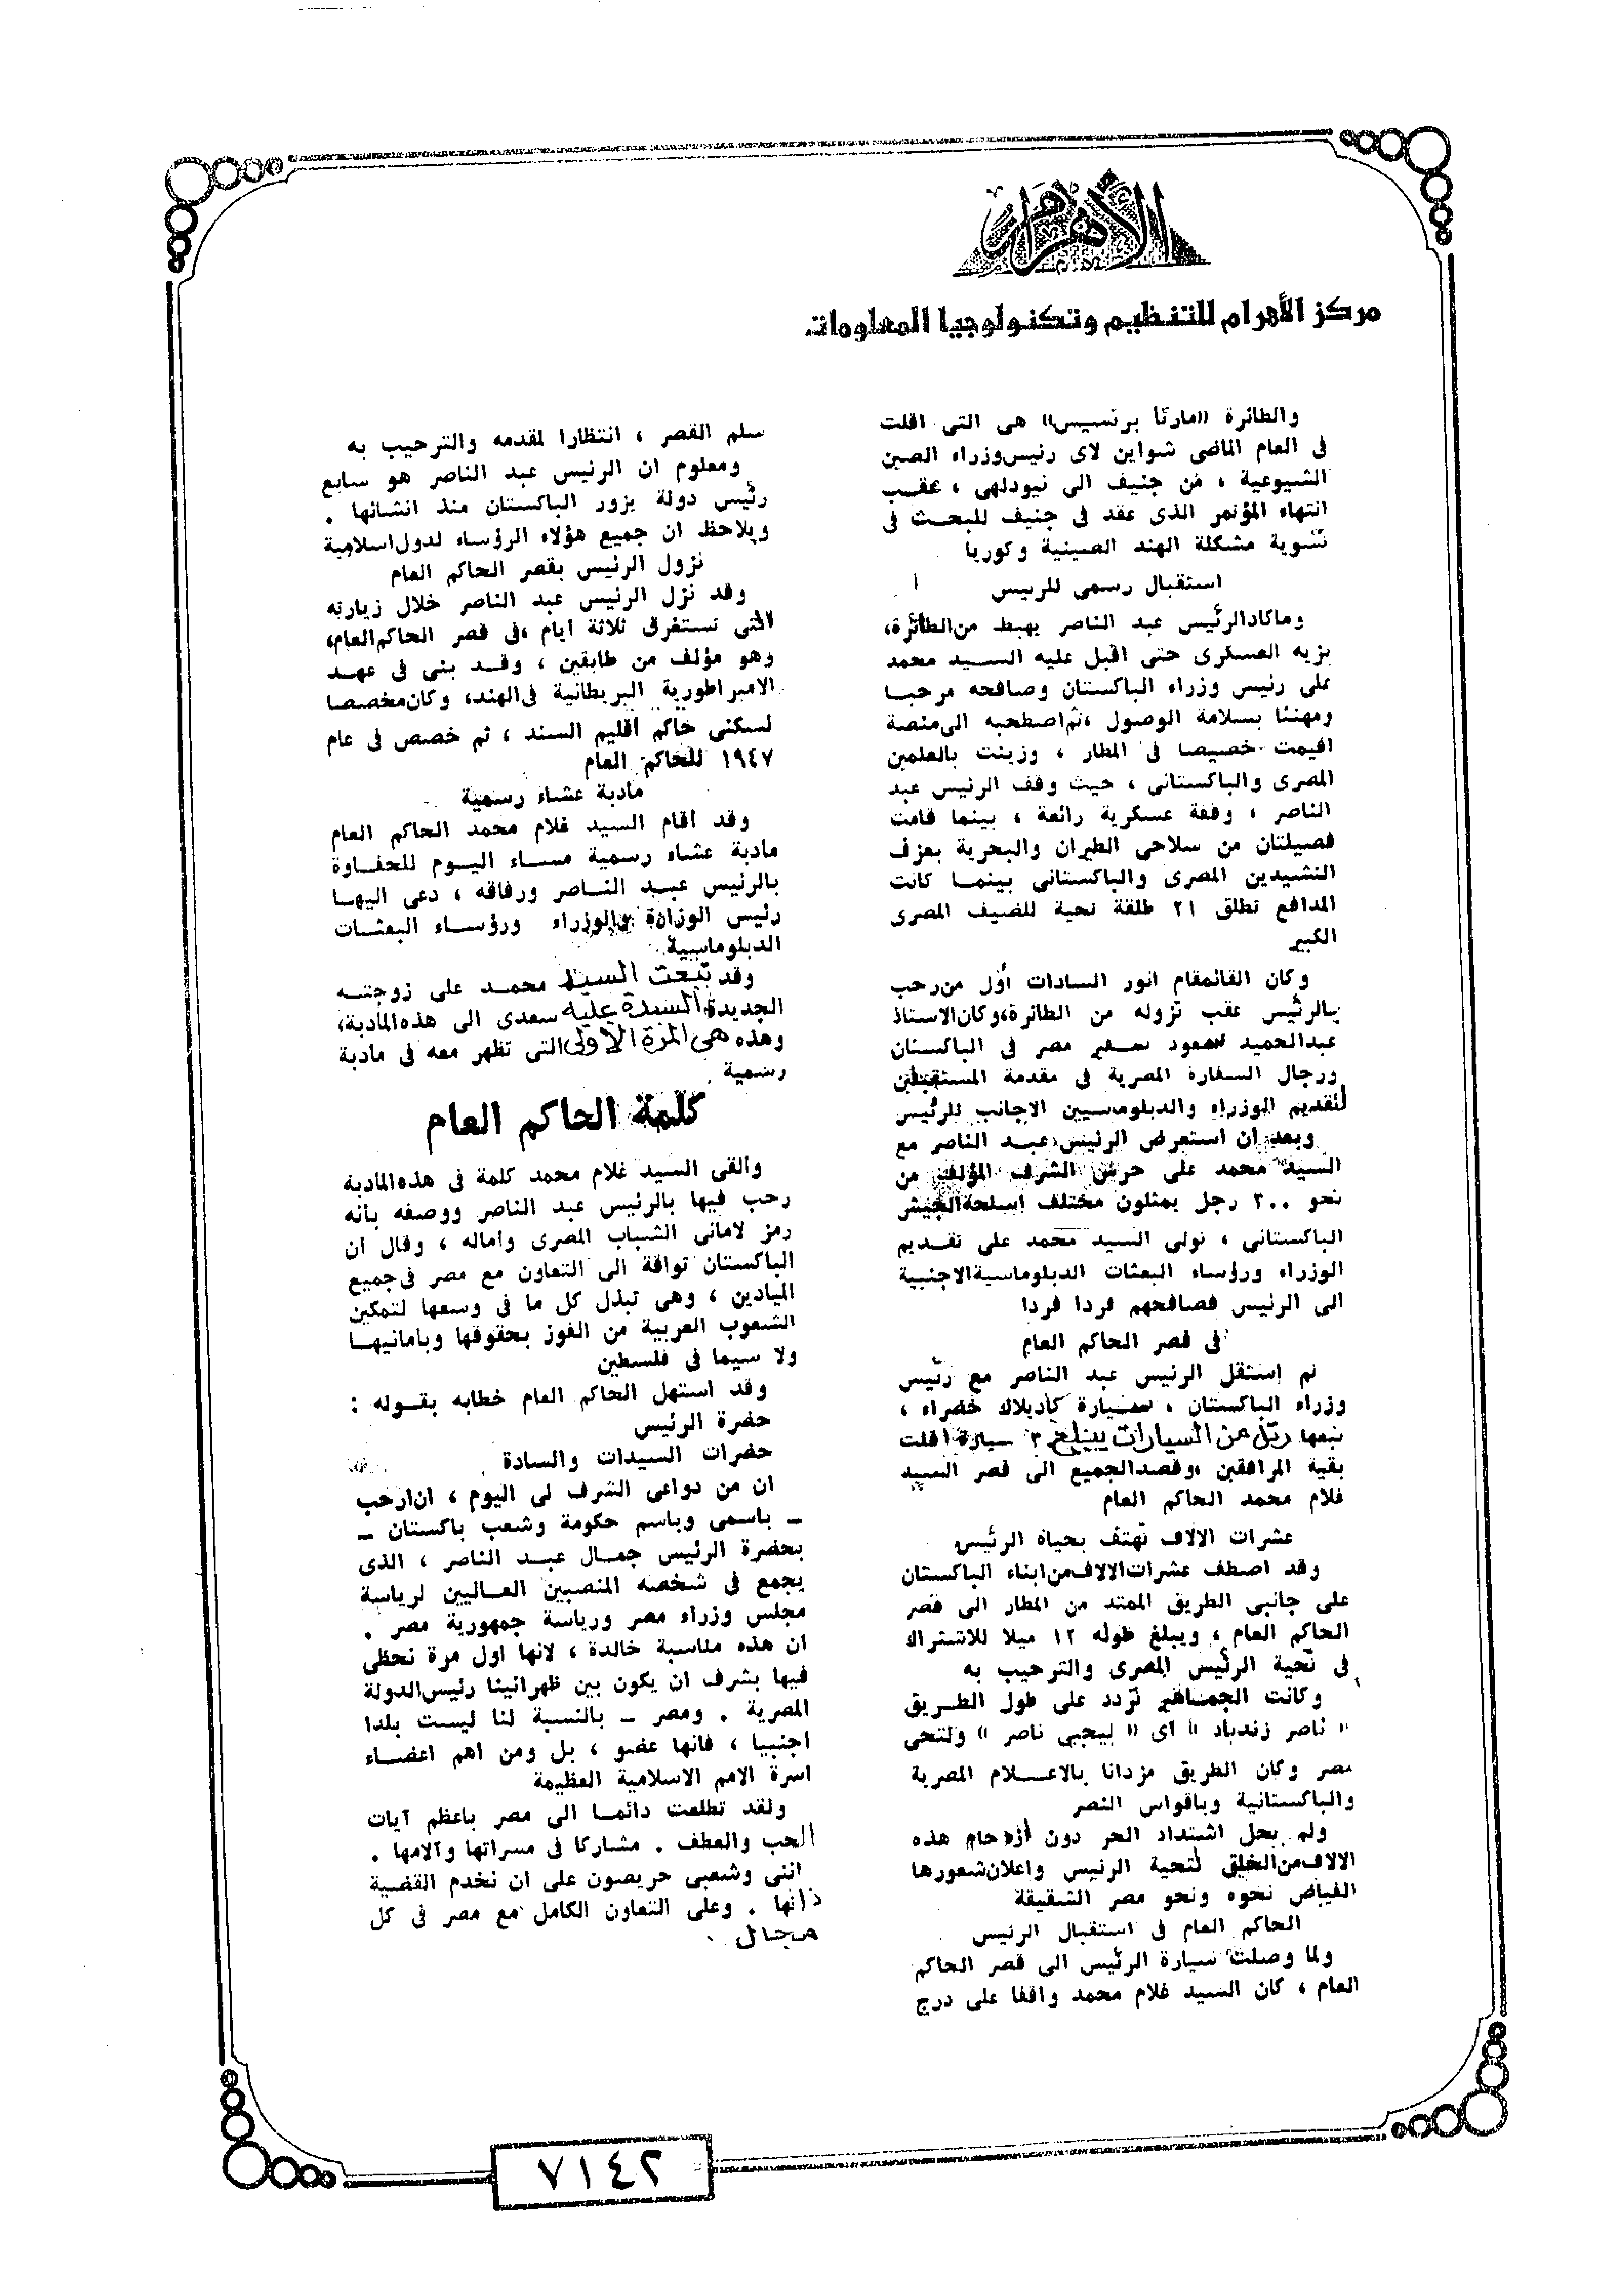 الأهرام
مركز الأهرام للتنظيم وتكنولوجيا المعلومات
والطائرة «مارتا برنسيس» هى التى اقلت
فى العام الماضى شواين لاى رئيس وزراء الصين
الشيوعية ، من جنيف الى نيودلهى ، عقب
انتهاء المؤتمر الذى عقد فى جنيف للبحث فى
تسوية مشكلة الهند الصينية وكوريا
استقبال رسمى للرئيس
وماكاد الرئيس عبد الناصر يهبط من الطائرة،
بزيه العسكرى حتى اقبل عليه السيد محمد
على رئيس وزراء الباكستان وصافحه مرحبا
ومهنئا بسلامة الوصول ،ثم اصطحبه الى منصة
اقيمت خصيصا فى المطار ، وزينت بالعلمين
المصرى والباكستانى ، حيث وقف الرئيس عبد
الناصر ، وقفة عسكرية رائعة ، بينما قامت
فصيلتان من سلاحى الطيران والبحرية بعزف
النشيدين المصرى والباكستانى بينما كانت
المدافع تطلق ٢١ طلقة تحية للضيف المصرى
الكبير
وكان القائمقام انور السادات أول من رحب
بالرئيس عقب نزوله من الطائرة،وكان الاستاذ
عبدالحميد سعود سفير مصر فى الباكستان
ورجال السفارة المصرية فى مقدمة المستقبلين
لتقديم الوزراء والدبلوماسيين الاجانب للرئيس
وبعد ان استعرض الرئيس عبد الناصر مع
السيد محمد على حرس الشرف المؤلف من
نحو ٢٠٠ رجل يمثلون مختلف اسلحة الجيش
الباكستانى ، تولى السيد محمد على تقديم
الوزراء ورؤساء البعثات الدبلوماسية الاجنبية
الى الرئيس فصافحهم فردا فردا
فى قصر الحاكم العام
ثم إستقل الرئيس عبد الناصر مع رئيس
وزراء الباكستان ، سيارة كاديلاك خضراء ،
تبعها رتل من السيارات يبلغ سيارة اقلت
بقية المرافقين ،وقصد الجميع الى قصر السيد
غلام محمد الحاكم العام
عشرات الالاف تهتف بحياة الرئيس
وقد اصطف عشرات الالاف من ابناء الباكستان
على جانبى الطريق الممتد من المطار الى قصر
الحاكم العام ، ويبلغ طوله ١٢ ميلا للاشتراك
فى تحية الرئيس المصرى والترحيب به
وكانت الجماهير تردد على طول الطريق
« ناصر زندباد » اى « ليحيى ناصر » ولتحى
مصر وكان الطريق مزدانا بالاعلام المصرية
والباكستانية وباقواس النصر
ولم يحل اشتداد الحر دون ازدحام هذه
الالاف من الخلق لتحية الرئيس واعلان شعورها
الفياض نحوه ونحو مصر الشقيقة
الحاكم العام فى استقبال الرئيس
ولما وصلت سيارة الرئيس الى قصر الحاكم
العام ، كان السيد غلام محمد واقفا على درج
سلم القصر ، انتظارا لمقدمه والترحيب به
ومعلوم ان الرئيس عبد الناصر هو سابع
رئيس دولة يزور الباكستان منذ انشائها .
ويلاحظ ان جميع هؤلاء الرؤساء لدول اسلامية
نزول الرئيس بقصر الحاكم العام
وقد نزل الرئيس عبد الناصر خلال زيارته
التى تستغرق ثلاثة ايام ،فى قصر الحاكم العام،
وهو مؤلف من طابقين ، وقد بنى فى عهد
الامبراطورية البريطانية فى الهند، وكان مخصصا
لسكنى حاكم اقليم السند ، ثم خصص فى عام
١٩٤٧ للحاكم العام
مادبة عشاء رسمية
وقد اقام السيد غلام محمد الحاكم العام
مادبة عشاء رسمية مساء اليوم للحفاوة
بالرئيس عبد الناصر ورفاقه ، دعى اليها
رئيس الوزارة والوزراء ورؤساء البعثات
الدبلوماسية
وقد السيد محمد على زوجته
الجديدة السيدة عليه سعدى الى هذه المادبة،
وهذه هى المرة الاولى التى تظهر معه فى مادبة
رسمية
كلمة الحاكم العام
والقى السيد غلام محمد كلمة فى هذه المادبة
رحب فيها بالرئيس عبد الناصر ووصفه بانه
رمز لامانى الشباب المصرى وآماله ، وقال ان
الباكستان تواقة الى التعاون مع مصر فى جميع
الميادين ، وهى تبذل كل ما فى وسعها لتمكين
الشعوب العربية من الفوز بحقوقها وبامانيها
ولا سيما فى فلسطين
وقد استهل الحاكم العام خطابه بقوله :
حضرة الرئيس
حضرات السيدات والسادة
ان من دواعى الشرف لى اليوم ، ان ارحب
ــ باسمى وباسم حكومة وشعب باكستان ــ
بحضرة الرئيس جمال عبد الناصر ، الذى
يجمع فى شخصه المنصبين العاليين لرياسة
مجلس وزراء مصر ورياسة جمهورية مصر .
ان هذه مناسبة خالدة ، لانها اول مرة نحظى
فيها بشرف ان يكون بين ظهرانينا رئيس الدولة
المصرية . ومصر ــ بالنسبة لنا ليست بلدا
اجنبيا ، فانها عضو ، بل ومن اهم اعضاء
اسرة الامم الاسلامية العظيمة
ولقد تطلعت دائما الى مصر باعظم آيات
الحب والعطف . مشاركا فى مسراتها وآلامها .
اننى وشعبى حريصون على ان نخدم القضية
ذاتها . وعلى التعاون الكامل مع مصر فى كل
مجال .
٧١٤٢